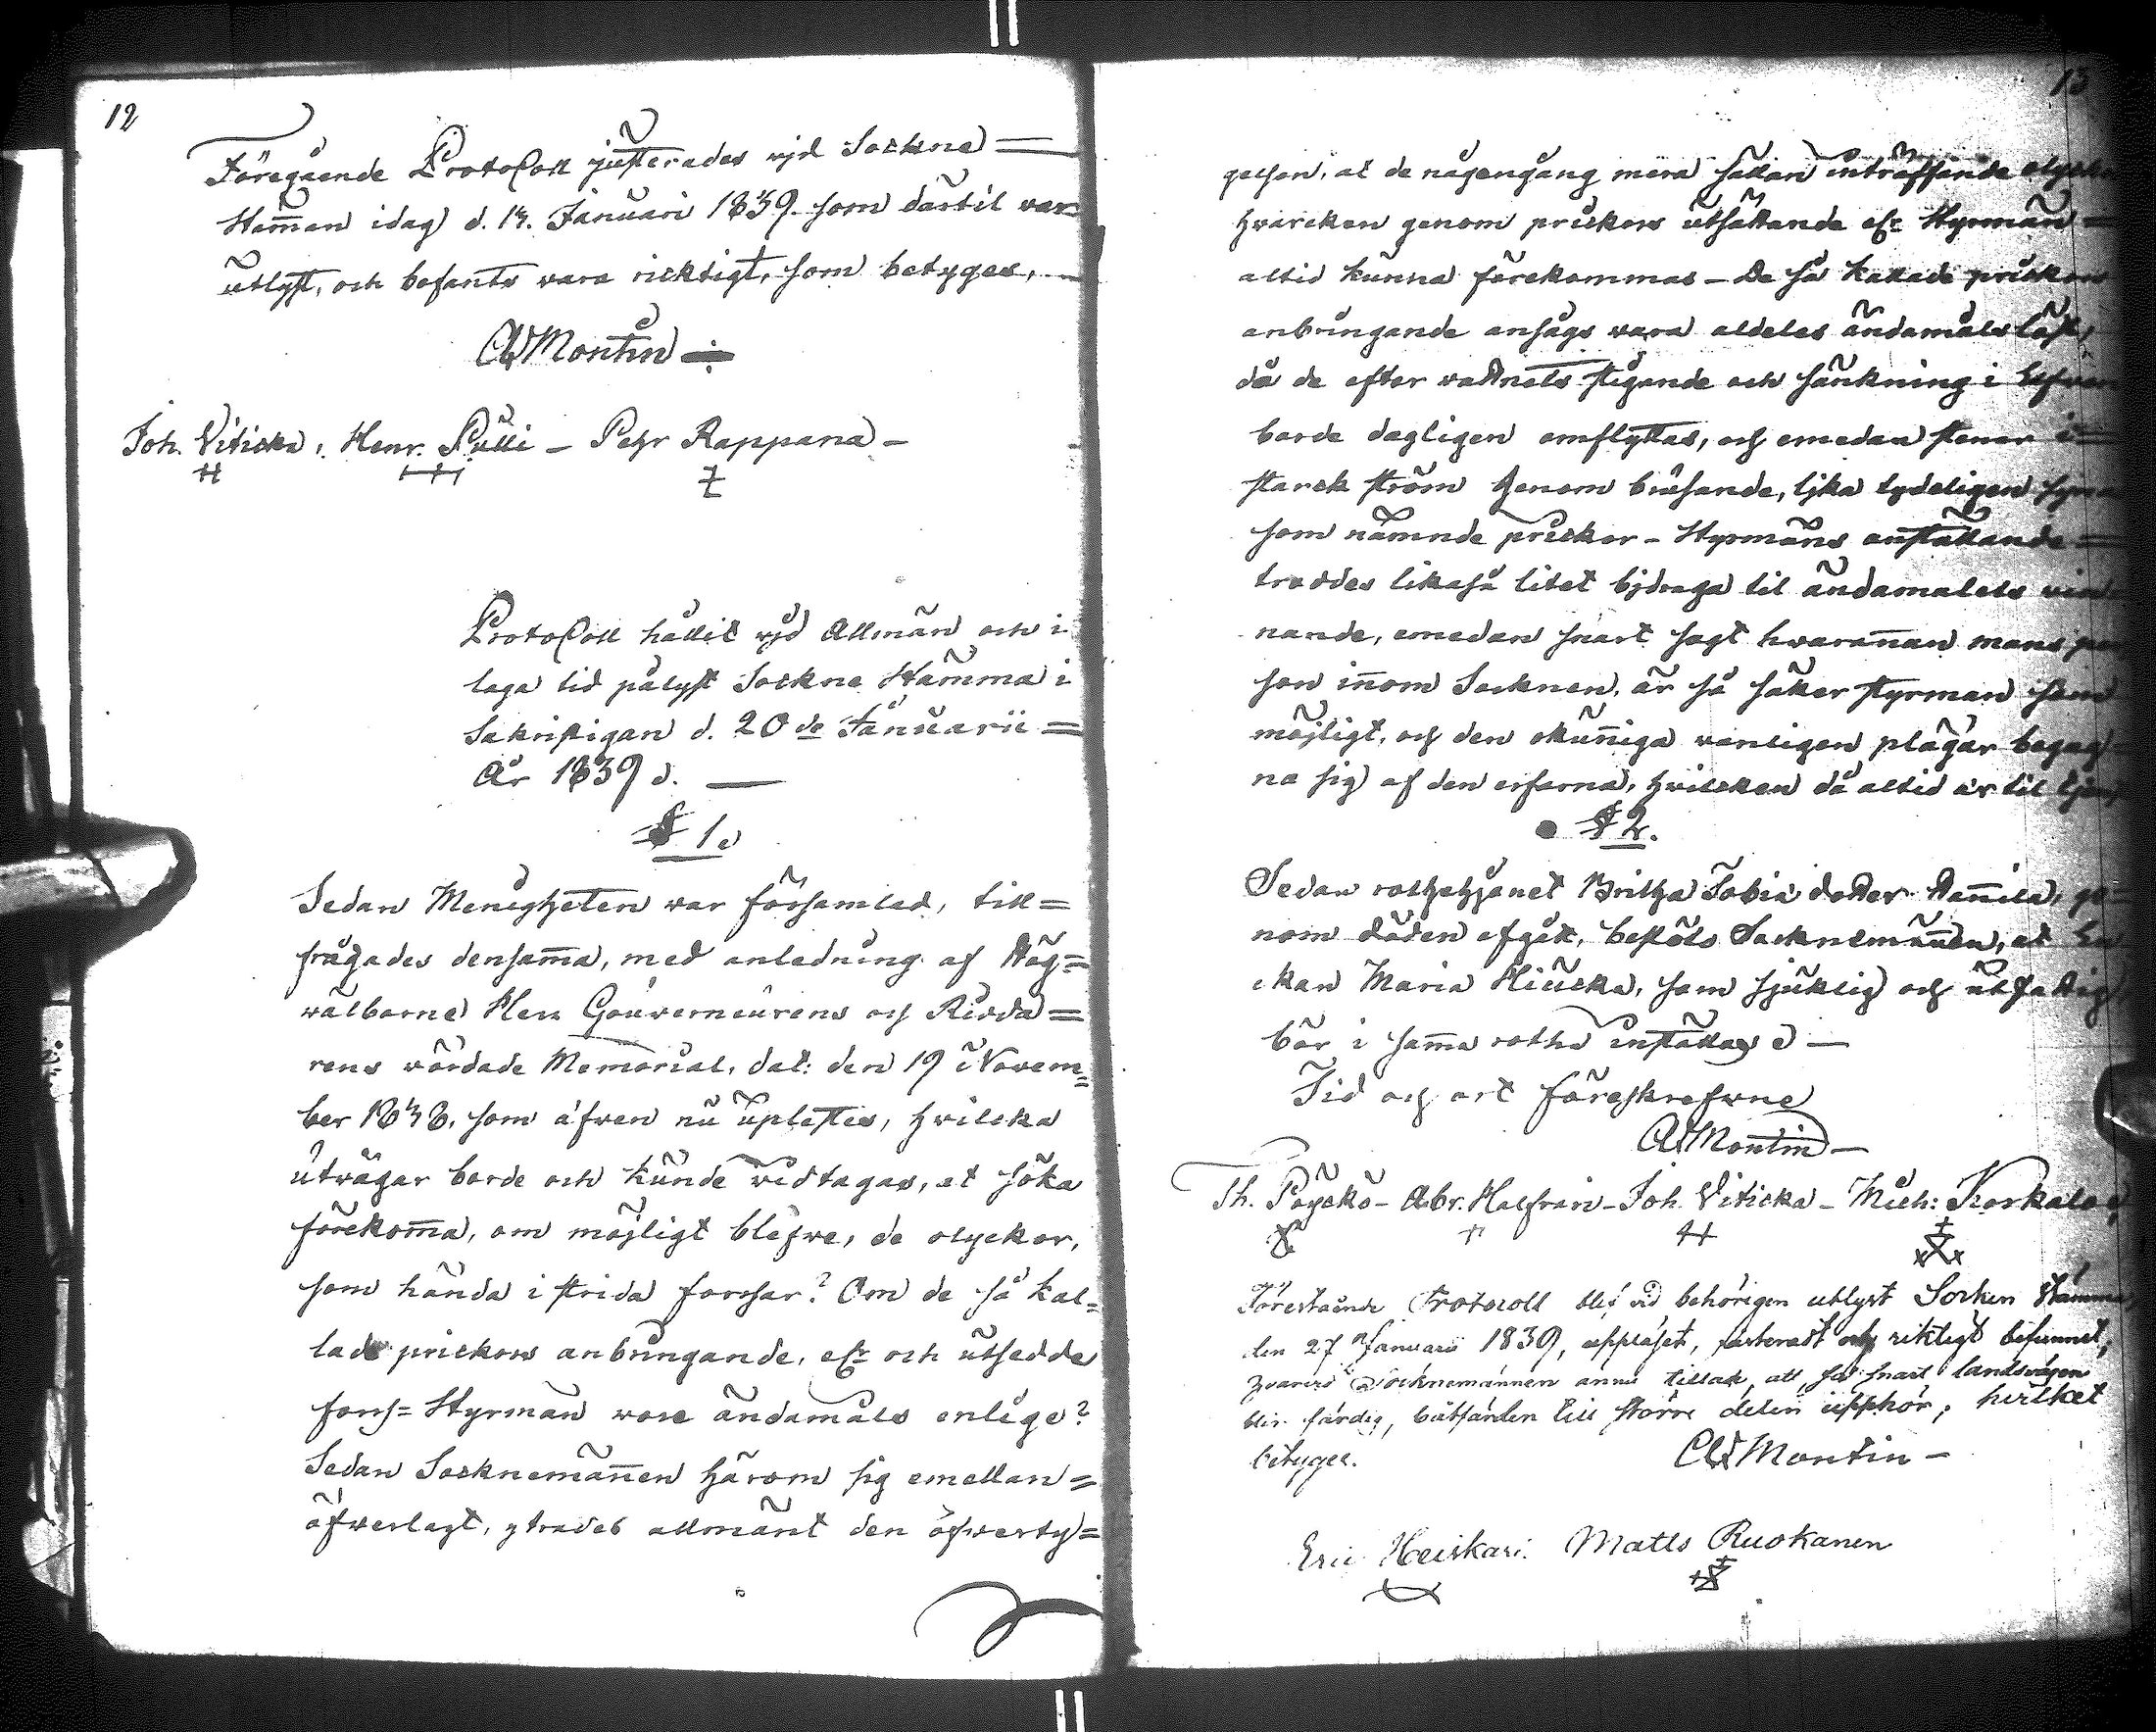 12
Föregående Protocoll justerades vjd Sockne=
Stämman idag d. 13. Januari 1839. som därtil var
utlyst, och befants vara ricktigt, som betyges,
CWMontin
Joh. Viticka, Henr. Pulli – Pehr Rappana –
Protocoll hållit vjd Allmän och i
laga tid pålyst Sockne Stämma i
Sakristigan d. 20de Januarii =
År 1839.
§ 1.
Sedan Menigheten var församlad, till=
frågades densam̄a, med anledning af Hög=
välborne Herr Gouverneurens och Ridda=
rens vördade Memorial, dat: den 19 Novem=
ber 1838, som äfven nu uplästes, hvilcka
utvägar borde och kunde vidtagas, at söka
förekom̄a, om möjligt blefve, de olyckor,
som hända i strida forssar? Om de så kal=
lade prickors anbringande, eller och utsedde
forss=Styrmän vore ändamåls enlige?
Sedan Socknemän̄en härom sig emellan=
öfverlagt, ytrades allmänt den öfverty=
13
gelsen, at de någongång mera sällan inträffande
hvarcken genom prickors utsättande eller Styrmän =
altid kunna förekommas – De så kallade prickors
anbringande ansågs vara aldeles ändamåls löst,
då de efter vattnets stigande och sänkning i
borde dagligen omflyttas, och emedan stenar i
starck ström genom brusande, ljka tydeligen
som nämnde prickor – Styrmäns anställande =
troddes likaså litet bjdraga til ändamålets vin
nande, emedan snart sagt hvaran̄an mans per
son in̄om Socknen, är så säker styrman som
möjligt, och den okun̄iga vanligen plägar begag
na sig af den erfarna, hvilcken då altid är til
§ 2.
Sedan rothehjonet Britha Tobiä dotter ge=
nom döden afgåt, beslöts Socknemän̄en, at En
ckan Maria som sjuklig och utfattig
bör i sam̄a rotha inställas –
Tid och ort föreskrefvne
CWMontin –
Th. Pöyckö – Abr. Halfvari – Joh. Viticka – Mich: Korkalo
Förestående Protocoll blef vid behörigen utlyst Socken Stämma
den 27 Januarii 1839, uppläset, justeradt och riktigt befunnet,
hvarvid Socknemännen ännu tillade, att så snart landsvägen
blir färdig, båtfärden till större delen upphör, hvilket
betyges. CWMontin –
Eric Heiskari. Matts Ruokanen